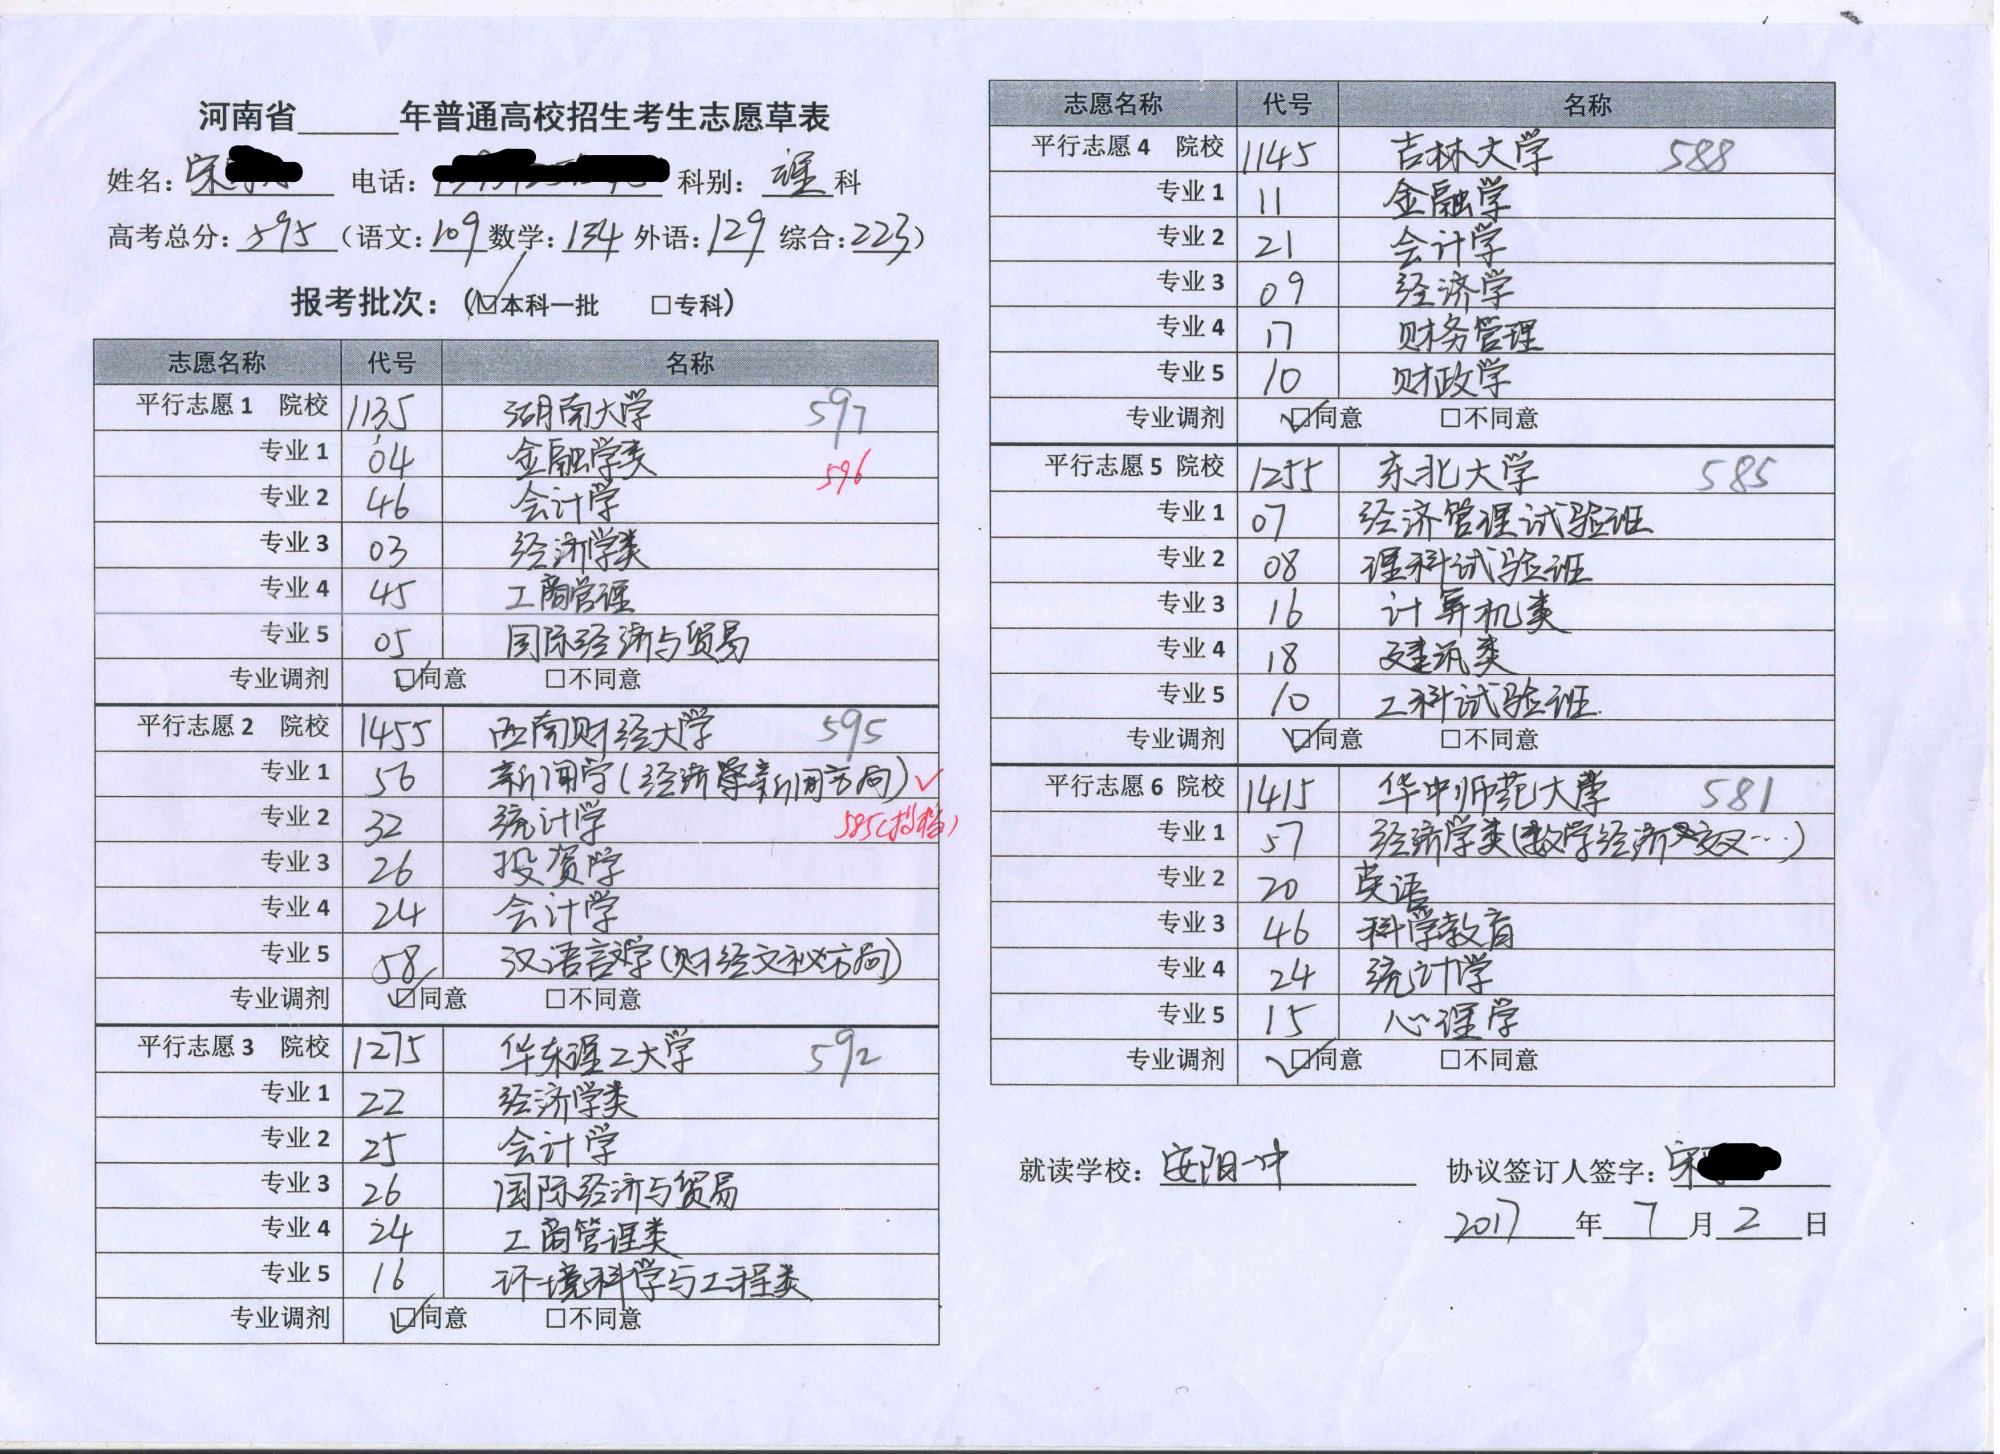 河南省______年普通高校招生考生志愿草表
姓名：宋 电话： 科别：理科
高考总分：595（语文：109数学：134 外语：129 综合：223）
报考批次：（☑本科一批 □专科）
志愿名称 代号 名称
平行志愿1 院校 1135 湖南大学 597
专业1 04 金融学类 596
专业2 46 会计学
专业3 03 经济学类
专业4 45 工商管理
专业5 05 国际经济与贸易
专业调剂 ☑同意 □不同意
平行志愿2 院校 1455 西南财经大学 595
专业1 56 新闻学（经济学新闻方向）✓
专业2 32 统计学 585（投档）
专业3 26 投资学
专业4 24 会计学
专业5 58 汉语言学（财经文秘方向）
专业调剂 ☑同意 □不同意
平行志愿3 院校 1275 华东理工大学 592
专业1 22 经济学类
专业2 25 会计学
专业3 26 国际经济与贸易
专业4 24 工商管理类
专业5 16 环境科学与工程类
专业调剂 ☑同意 □不同意
志愿名称 代号 名称
平行志愿4 院校 1145 吉林大学 588
专业1 11 金融学
专业2 21 会计学
专业3 09 经济学
专业4 17 财务管理
专业5 10 财政学
专业调剂 ☑同意 □不同意
平行志愿5 院校 1255 东北大学 585
专业1 07 经济管理试验班
专业2 08 理科试验班
专业3 16 计算机类
专业4 18 建筑类
专业5 10 工科试验班
专业调剂 ☑同意 □不同意
平行志愿6 院校 1415 华中师范大学 581
专业1 57 经济学类（数学经济交叉…）
专业2 20 英语
专业3 46 科学教育
专业4 24 统计学
专业5 15 心理学
专业调剂 ☑同意 □不同意
就读学校：安阳一中 协议签订人签字：宋
2017年7月2日